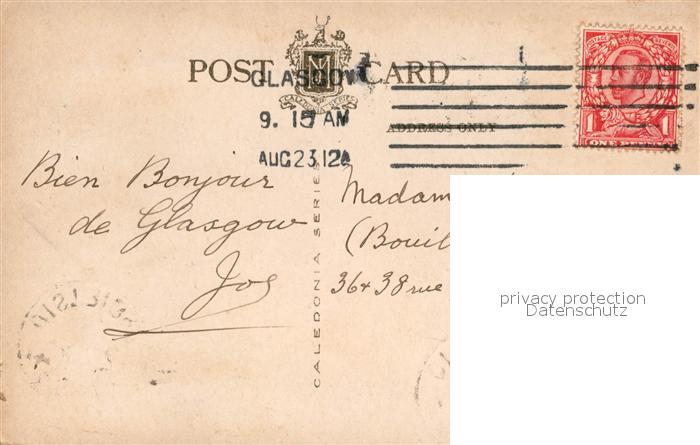 POST CARD
CALEDONIA SERIES
GLASGOW
9. 15 AM
AUG 23 12A
ADDRESS ONLY
1 1
ONE PENNY
Bien Bonjour
de Glasgow
Jos
CALEDONIA SERIES
Madam
(Bouil
36 + 38 rue
privacy protection
Datenschutz